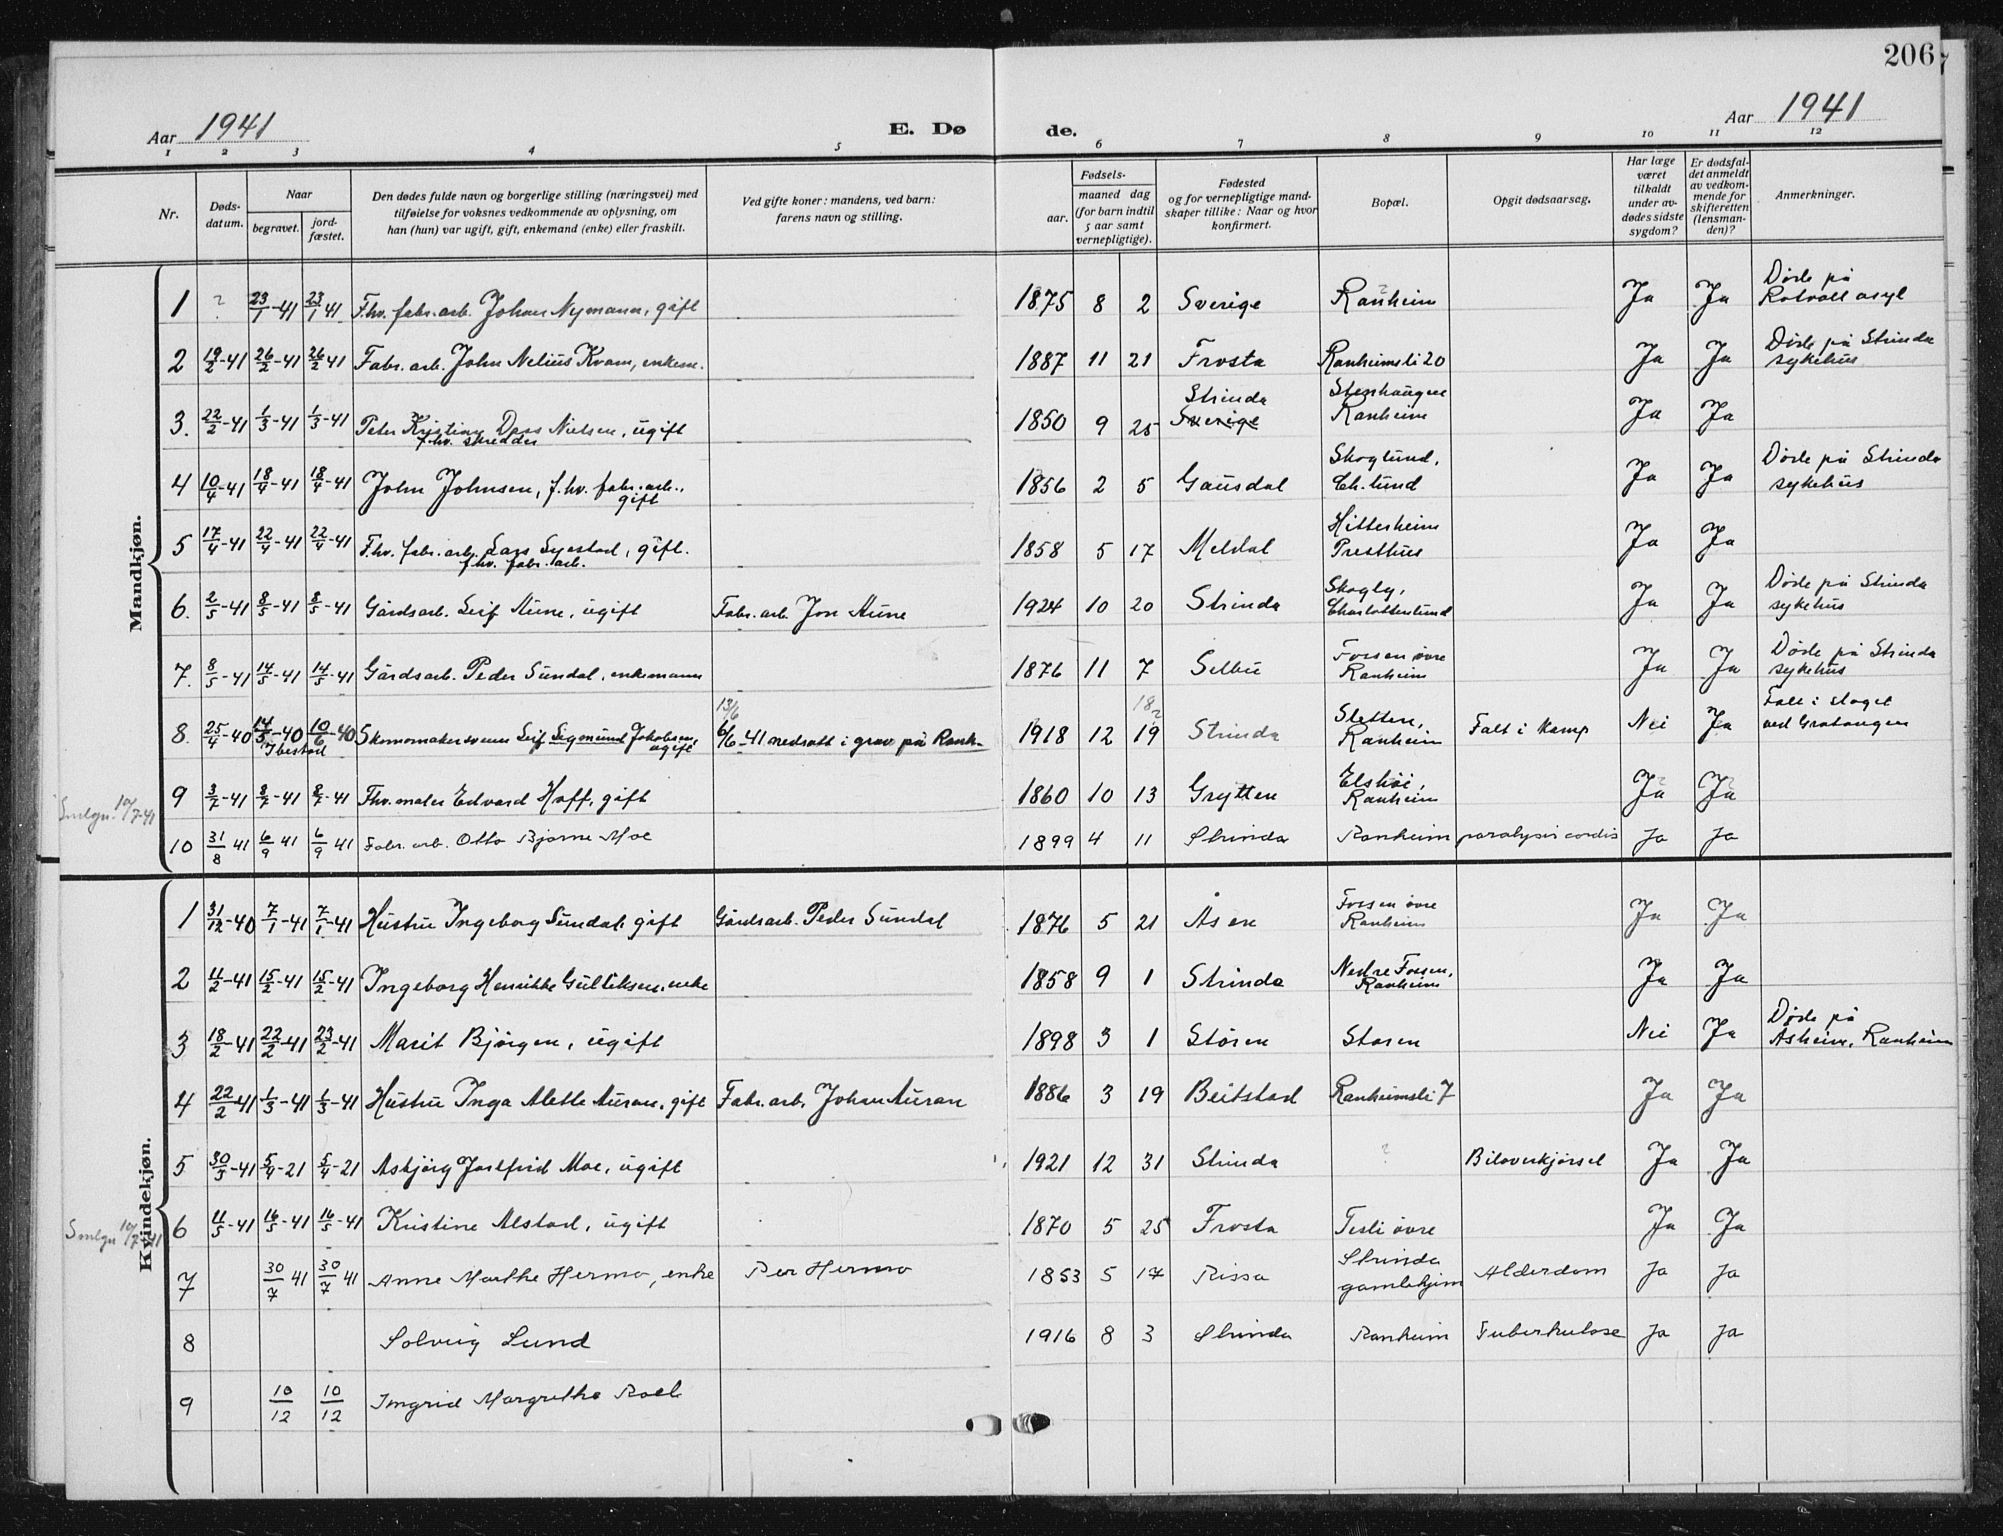 206
Aar 1941 E. Dø de. Aar 1941
1 2 3 4 5 6 7 8 9 10 11 12
Nr. Døds-datum. Naar begravet. jord-fæstet. Den dødes fulde navn og borgerlige stilling (næringsvei) med tilføielse for voksnes vedkommende av oplysning, om han (hun) var ugift, gift, enkemand (enke) eller fraskilt. Ved gifte koner: mandens, ved barn: farens navn og stilling. Fødsels- aar. maaned dag (for barn indtil 5 aar samt vernepligtige). Fødested og for vernepligtige mandskaper tillike: Naar og hvor konfirmert. Bopæl. Opgit dødsaarsag. Har læge været tilkaldt under av-dødes sidste sygdom? Er dødsfal-det anmeldt av vedkom-mende for skifteretten (lensman-den)? Anmerkninger.
Mandkjøn.
1 ? 23/1-41 23/1 41 Fhv. fabr. arb. Johan Nymann, gift 1875 8 2 Sverige Ranheim Ja Ja Døde på Rotvoll asyl
2 19/2-41 26/2-41 26/2 41 Fabr. arb. John Nelius Kvam, enkem. 1887 11 21 Frosta Ranheimsli 20 Ja Ja Døde på Strinda sykehus
3. 22/2-41 1/3-41 1/3-41 Peter Kristian Dass Nielsen, ugift f.hv. skredder 1850 9 25 Strinda Sverige Stenhaugen Ranheim Ja Ja
4 10/4-41 18/4-41 18/4-41 John Johnsen, f.hv. fabr. arb., gift 1856 2 5 Gausdal Skoglund, Ch.lund Ja Ja Døde på Strinda sykehus
5 17/4-41 22/4-41 22/4-41 F.hv. fabr. arb. Lars Syrstad, gift. f.hv. fabr. arb. 1858 5 17 Meldal Hitterheim Presthus Ja Ja
6. 2/5-41 8/5-41 8/5-41 Gårdsarb. Leif Aune, ugift Fabr. arb. Jon Aune 1924 10 20 Strinda Skogly, Charlottenlund Ja Ja Døde på Strinda sykehus
7. 8/5-41 14/5-41 14/5-41 Gårdsarb. Peder Sundal, enkemann 1876 11 7 Selbu Fossen øvre Ranheim Ja Ja Døde på Strinda sykehus
8. 25/4-40 14/5-40 Ibestad 10/6-40 Skomomakersvenn Leif Sigmund Jakobsen, ugift 13/6 6/6-41 nedsatt i grav på Ranh. 1918 12 19 18/2 Strinda Sletten, Ranheim Falt i kamp Nei Ja Falt i slaget ved Gratangen
9 3/7-41 8/7-41 8/7-41 Fhv. maler Edvard Hoff, gift 1860 10 13 Grytten Elshøi, Ranheim Ja Ja
Smlgn. 10/7-41
10 31/8 41 6/9 41 6/9 41 Fabr. arb. Otto Bjarne Moe 1899 4 11 Strinda Ranheim paralysis cordis Ja Ja
Kvindekjøn.
1 31/12-40 7/1-41 7/1-41 Hustru Ingeborg Sundal, gift Gårdsarb. Peder Sundal 1876 5 21 Åsen Fossen øvre Ranheim Ja Ja
2 11/2-41 15/2-41 15/2-41 Ingeborg Henrikke Gulliksen, enke 1858 9 1 Strinda Nedre Fossen, Ranheim Ja Ja
3 18/2-41 22/2-41 23/2-41 Marit Bjørgen, ugift 1898 3 1 Støren Støren Nei Ja Døde på Asheim, Ranheim
4 22/2-41 1/3-41 1/3-41 Hustru Inga Alette Auran, gift Fabr. arb. Johan Auran 1886 3 19 Beitstad Ranheimsli 7 Ja Ja
5 30/3-41 5/4-21 5/4-21 Asbjørg Josefrid Moe, ugift 1921 12 31 Strinda ? Biloverkjørsel Ja Ja
6 11/5-41 16/5-41 16/5-41 Kristine Alstad, ugift 1870 5 25 Frosta Tesli øvre Ja Ja
Smlgn 10/7-41
7 30/7 41 30/7 41 Anne Marthe Hermo, enke Per Hermo 1853 5 17 Rissa Strinda gamlehjem Alderdom Ja Ja
8 Solveig Lund 1916 8 3 Strinda Ranheim Tuberkulose Ja Ja
9 10/12 10/12 Ingrid Margrethe Roel